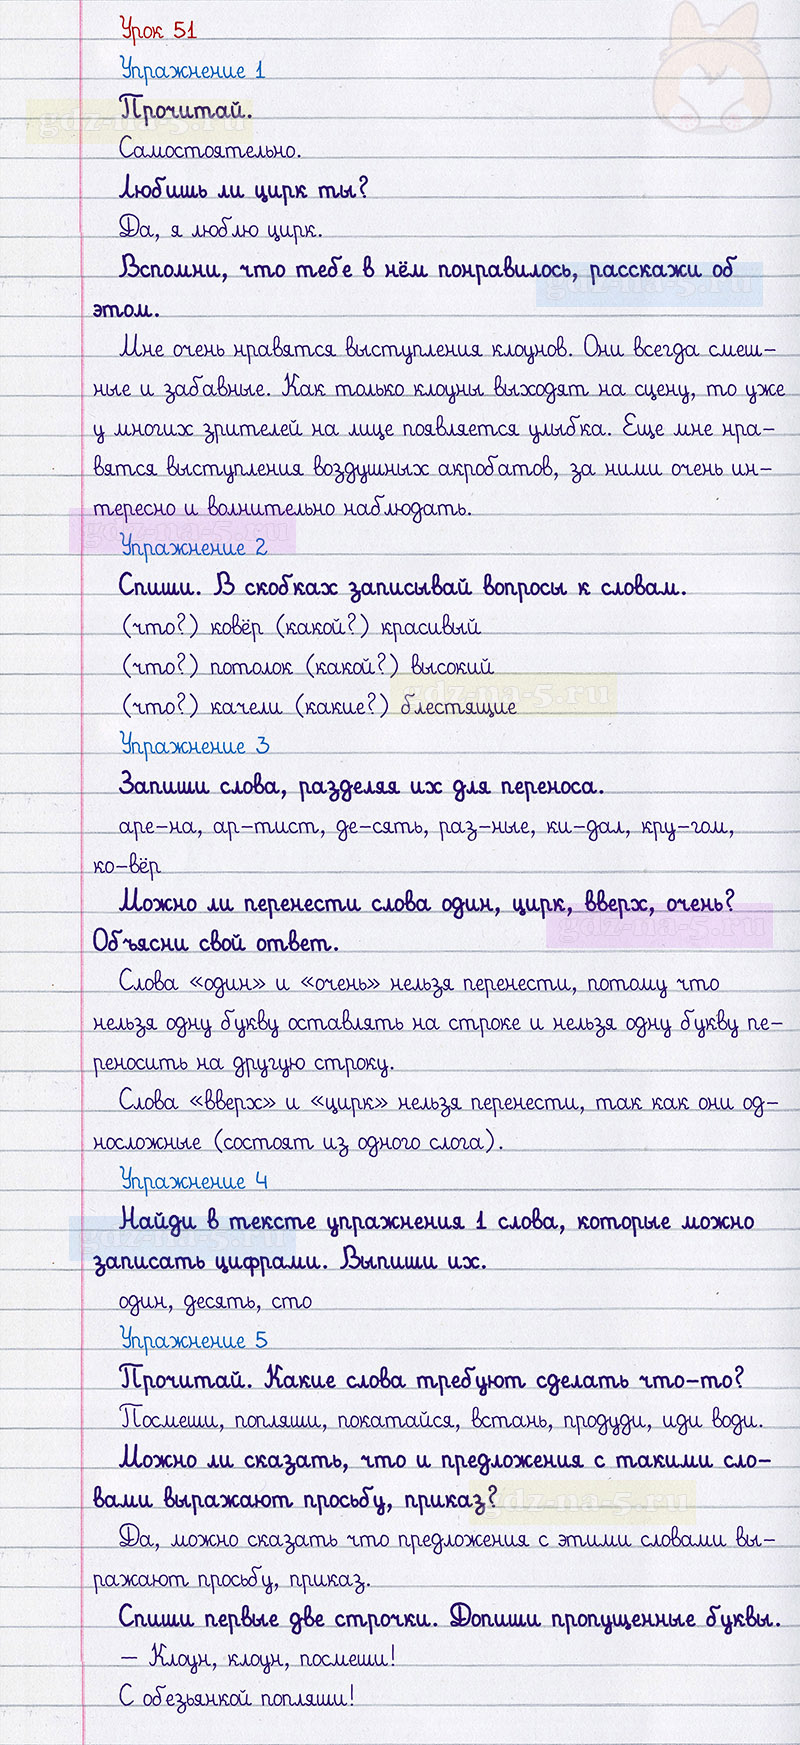 Урок 51
Упражнение 1
Прочитай.
gdz-na-5.ru
Самостоятельно.
Любишь ли цирк ты?
Да, я люблю цирк.
Вспомни, что тебе в нём понравилось, расскажи об
gdz-na-5.ru
этом.
Мне очень нравятся выступления клоунов. Они всегда смеш-
ные и забавные. Как только клоуны выходят на сцену, то уже
у многих зрителей на лице появляется улыбка. Еще мне нра-
вятся выступления воздушных акробатов, за ними очень ин-
тересно и волнительно наблюдать.
gdz-na-5.ru
Упражнение 2
Спиши. В скобках записывай вопросы к словам.
(что?) ковёр (какой?) красивый
(что?) потолок (какой?) высокий
gdz-na-5.ru
(что?) качели (какие?) блестящие
Упражнение 3
Запиши слова, разделяя их для переноса.
аре-на, ар-тист, де-сять, раз-ные, ки-дал, кру-гом,
ко-вёр
Можно ли перенести слова один, цирк, вверх, очень?
gdz-na-5.ru
Объясни свой ответ.
Слова «один» и «очень» нельзя перенести, потому что
нельзя одну букву оставлять на строке и нельзя одну букву пе-
реносить на другую строку.
Слова «вверх» и «цирк» нельзя перенести, так как они од-
носложные (состоят из одного слога).
Упражнение 4
Найди в тексте упражнения 1 слова, которые можно
gdz-na-5.ru
записать цифрами. Выпиши их.
один, десять, сто
Упражнение 5
Прочитай. Какие слова требуют сделать что-то?
Посмеши, попляши, покатайся, встань, продуди, иди води.
Можно ли сказать, что и предложения с такими сло-
вами выражают просьбу, приказ?
gdz-na-5.ru
Да, можно сказать что предложения с этими словами вы-
ражают просьбу, приказ.
Спиши первые две строчки. Допиши пропущенные буквы.
– Клоун, клоун, посмеши!
С обезьянкой попляши!